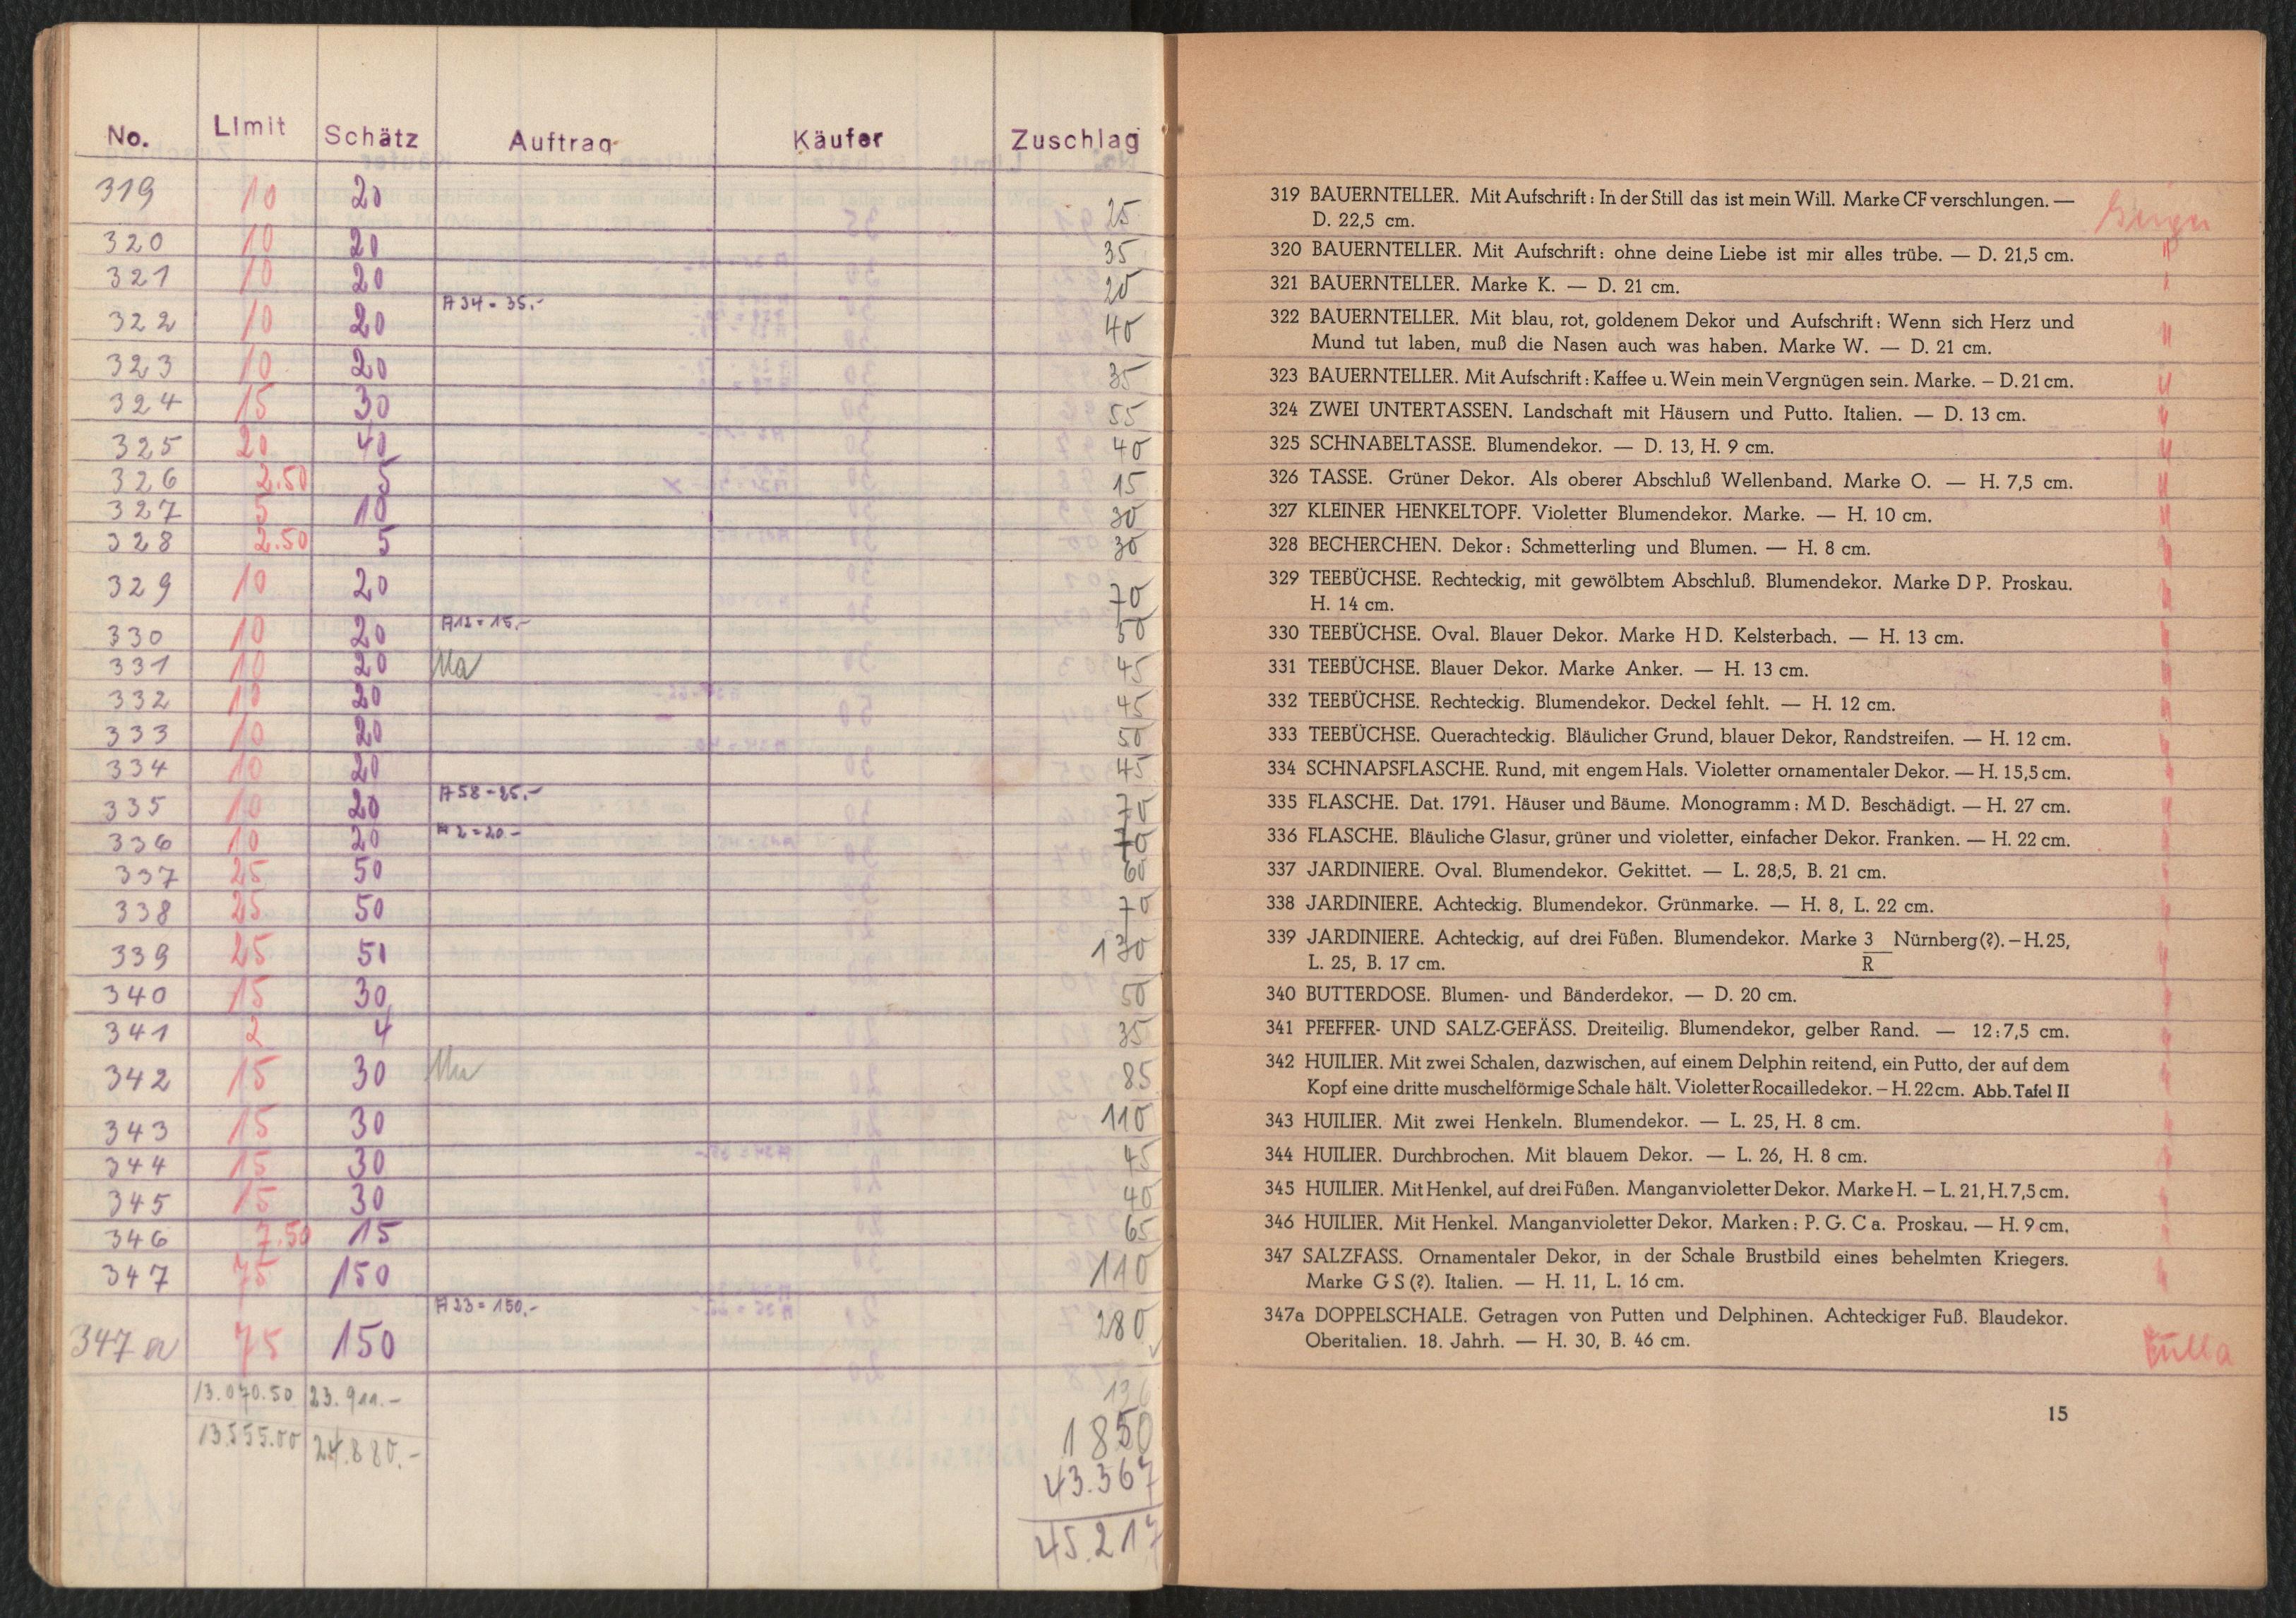 No. Limit Schätz Auftrag Käufer Zuschlag
319 10 20 25
320 10 20 35
321 10 20 20
322 10 20 A 34 = 35.- 40
323 10 20 35
324 15 30 55
325 20 40 40
326 2.50 5 15
327 5 10 30
328 2.50 5 30
329 10 20 70
330 10 20 A12 = 15.- 50
331 10 20 45
332 10 20 45
333 10 20 50
334 10 20 45
335 10 20 A 58 = 25.- 70
336 10 20 A 2 = 20.- 70
337 25 50 60
338 25 50 70
339 25 51 130
340 15 30 50
341 2 4 35
342 15 30 85
343 15 30 110
344 15 30 45
345 15 30 40
346 7.50 15 65
347 75 150 110
347a 75 150 A 23 = 150.- 280
13.070.50 23.911.-
13.555.00 24.880.-
1850
43.367
45.217
319 BAUERNTELLER. Mit Aufschrift: In der Still das ist mein Will. Marke CF verschlungen. —
D. 22,5 cm.
320 BAUERNTELLER. Mit Aufschrift: ohne deine Liebe ist mir alles trübe. — D. 21,5 cm.
321 BAUERNTELLER. Marke K. — D. 21 cm.
322 BAUERNTELLER. Mit blau, rot, goldenem Dekor und Aufschrift: Wenn sich Herz und
Mund tut laben, muß die Nasen auch was haben. Marke W. — D. 21 cm.
323 BAUERNTELLER. Mit Aufschrift: Kaffee u. Wein mein Vergnügen sein. Marke. – D. 21 cm.
324 ZWEI UNTERTASSEN. Landschaft mit Häusern und Putto. Italien. — D. 13 cm.
325 SCHNABELTASSE. Blumendekor. — D. 13, H. 9 cm.
326 TASSE. Grüner Dekor. Als oberer Abschluß Wellenband. Marke O. — H. 7,5 cm.
327 KLEINER HENKELTOPF. Violetter Blumendekor. Marke. — H. 10 cm.
328 BECHERCHEN. Dekor: Schmetterling und Blumen. — H. 8 cm.
329 TEEBÜCHSE. Rechteckig, mit gewölbtem Abschluß. Blumendekor. Marke D P. Proskau.
H. 14 cm.
330 TEEBÜCHSE. Oval. Blauer Dekor. Marke H D. Kelsterbach. — H. 13 cm.
331 TEEBÜCHSE. Blauer Dekor. Marke Anker. — H. 13 cm.
332 TEEBÜCHSE. Rechteckig. Blumendekor. Deckel fehlt. — H. 12 cm.
333 TEEBÜCHSE. Querachteckig. Bläulicher Grund, blauer Dekor, Randstreifen. — H. 12 cm.
334 SCHNAPSFLASCHE. Rund, mit engem Hals. Violetter ornamentaler Dekor. — H. 15,5 cm.
335 FLASCHE. Dat. 1791. Häuser und Bäume. Monogramm: M D. Beschädigt. — H. 27 cm.
336 FLASCHE. Bläuliche Glasur, grüner und violetter, einfacher Dekor. Franken. — H. 22 cm.
337 JARDINIERE. Oval. Blumendekor. Gekittet. — L. 28,5, B. 21 cm.
338 JARDINIERE. Achteckig. Blumendekor. Grünmarke. — H. 8, L. 22 cm.
339 JARDINIERE. Achteckig, auf drei Füßen. Blumendekor. Marke 3 Nürnberg (?). – H. 25,
L. 25, B. 17 cm. R
340 BUTTERDOSE. Blumen- und Bänderdekor. — D. 20 cm.
341 PFEFFER- UND SALZ-GEFÄSS. Dreiteilig. Blumendekor, gelber Rand. — 12:7,5 cm.
342 HUILIER. Mit zwei Schalen, dazwischen, auf einem Delphin reitend, ein Putto, der auf dem
Kopf eine dritte muschelförmige Schale hält. Violetter Rocailledekor. – H. 22 cm. Abb. Tafel II
343 HUILIER. Mit zwei Henkeln. Blumendekor. — L. 25, H. 8 cm.
344 HUILIER. Durchbrochen. Mit blauem Dekor. — L. 26, H. 8 cm.
345 HUILIER. Mit Henkel, auf drei Füßen. Manganvioletter Dekor. Marke H. – L. 21, H. 7,5 cm.
346 HUILIER. Mit Henkel. Manganvioletter Dekor. Marken: P. G. C a. Proskau. — H. 9 cm.
347 SALZFASS. Ornamentaler Dekor, in der Schale Brustbild eines behelmten Kriegers.
Marke G S (?). Italien. — H. 11, L. 16 cm.
347a DOPPELSCHALE. Getragen von Putten und Delphinen. Achteckiger Fuß. Blaudekor.
Oberitalien. 18. Jahrh. — H. 30, B. 46 cm.
15